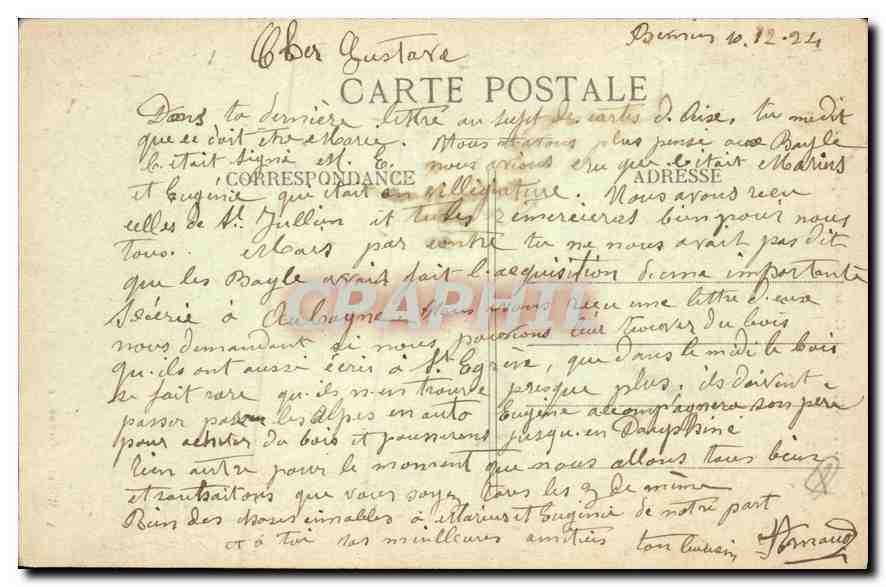 Cher Gustave 10.12.24
CARTE POSTALE
Dans ta dernière lettre au sujet des cartes d'Aix, tu me dit
que ce doit etre Marie. Nous avons plus pensé aux Bayle
C'etait signé M. E. nous avions cru que c'était Marius
CORRESPONDANCE ADRESSE
et Eugénie qui était en villégiature. Nous avons recu
celles de St Jullien et tu les remercieras bien pour nous
tous. Mais par contre tu ne nous avait pas dit
que les Bayle avait fait l'acquisition d'une importante
Scierie à Aubagne. Nous avons recu une lettre d'eux
CPAPHIL
nous demandant si nous pouvions leur trouver du bois
qu'ils ont aussi écris à St Egrève, que dans le midi le bois
se fait rare qu'ils n'en trouve presque plus. ils doivent
passer par les Alpes en auto Eugène accompagnera son père
pour acheter du bois et pousseront jusqu'en Dauphiné
rien autre pour le moment que nous allons tous bien
et souhaitons que vous soyez tous les 3 de même
Bien des choses aimables à Marius et Eugénie de notre part
et à toi nos meilleures amitiés ton Cousin Armand